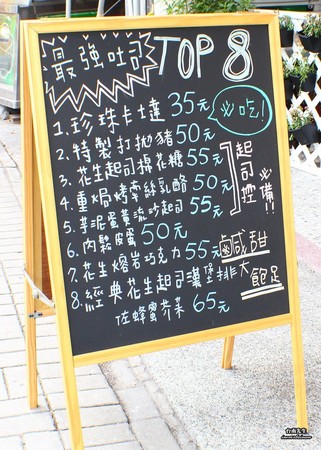 最強吐司 TOP 8
1. 珍珠卡士達 35元 必吃!
2. 特製打拋豬 50元
3. 花生起司棉花糖 55元
4. 重焗烤牽絲乳酪 50元
5. 芋泥蛋黃流沙起司 55元
起司控必備!!
6. 肉鬆皮蛋 50元
7. 花生熔岩巧克力 55元
鹹甜
8. 經典花生起司漢堡排
佐蜂蜜芥茉 65元
大飽足
台南先生